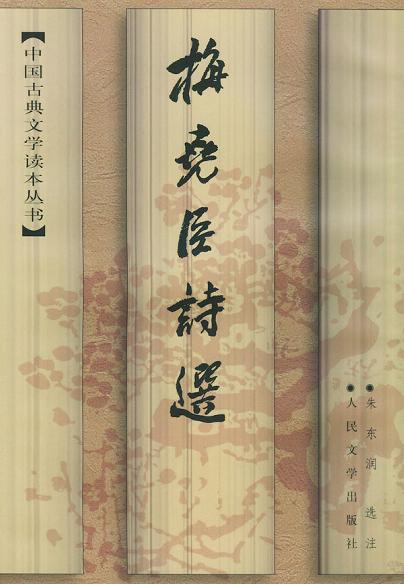 【中国古典文学读本丛书】
梅堯臣詩選
●朱东润 选注
●人民文学出版社